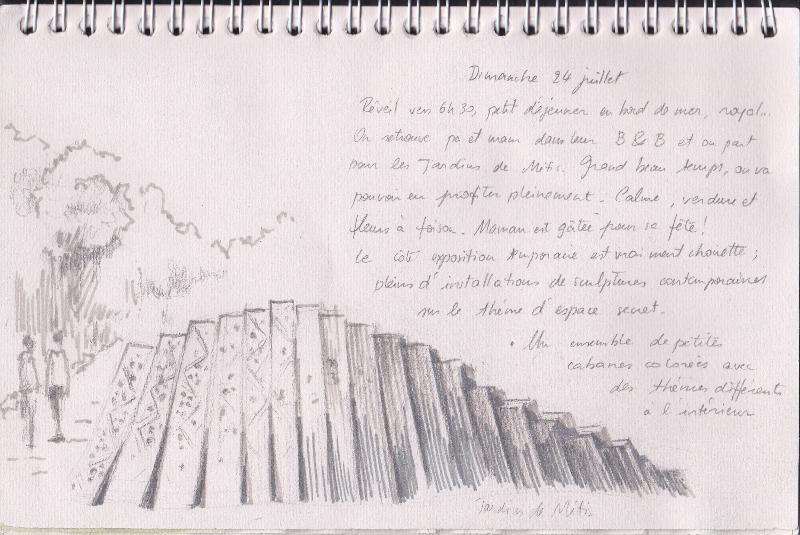 Dimanche 24 juillet
Réveil vers 6h30, petit déjeuner en bord de mer, royal...
On retrouve pa et mam dans leur B & B et on part
pour les Jardins de Métis. Grand beau temps, on va
pouvoir en profiter pleinement. Calme, verdure et
fleurs à foison. Maman est gâtée pour sa fête !
Le côté exposition temporaire est vraiment chouette ;
pleins d'installations de sculptures contemporaines
sur le thème d'espace secret.
• Un ensemble de petites
cabanes colorées avec
des thèmes différents
à l'intérieur
Jardins de Métis